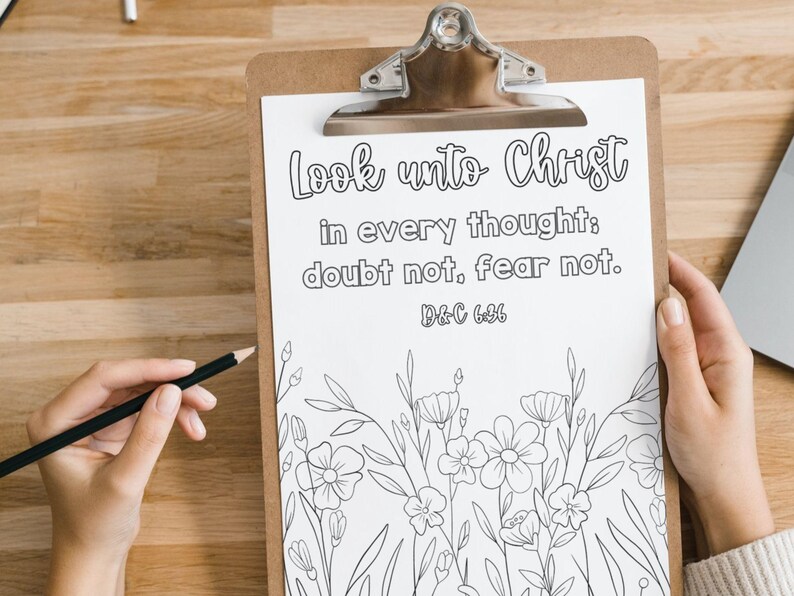 Look unto Christ
in every thought;
doubt not, fear not.
D&C 6:36